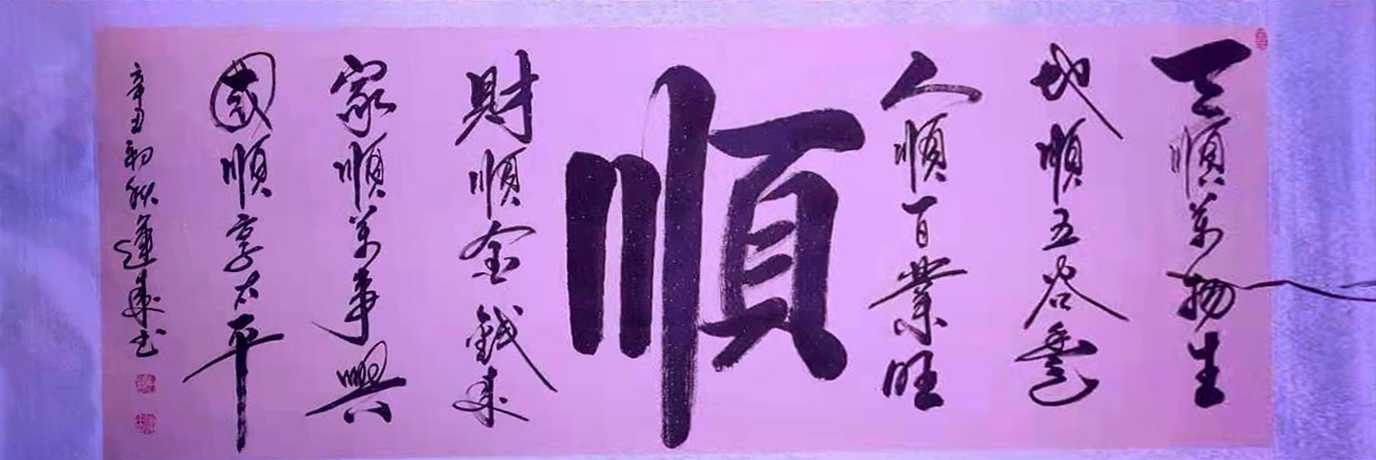 天順萬物生
地順五谷豊
人順百業旺
順
財順金錢來
家順萬事興
國順享太平
辛丑初秋蓮來书